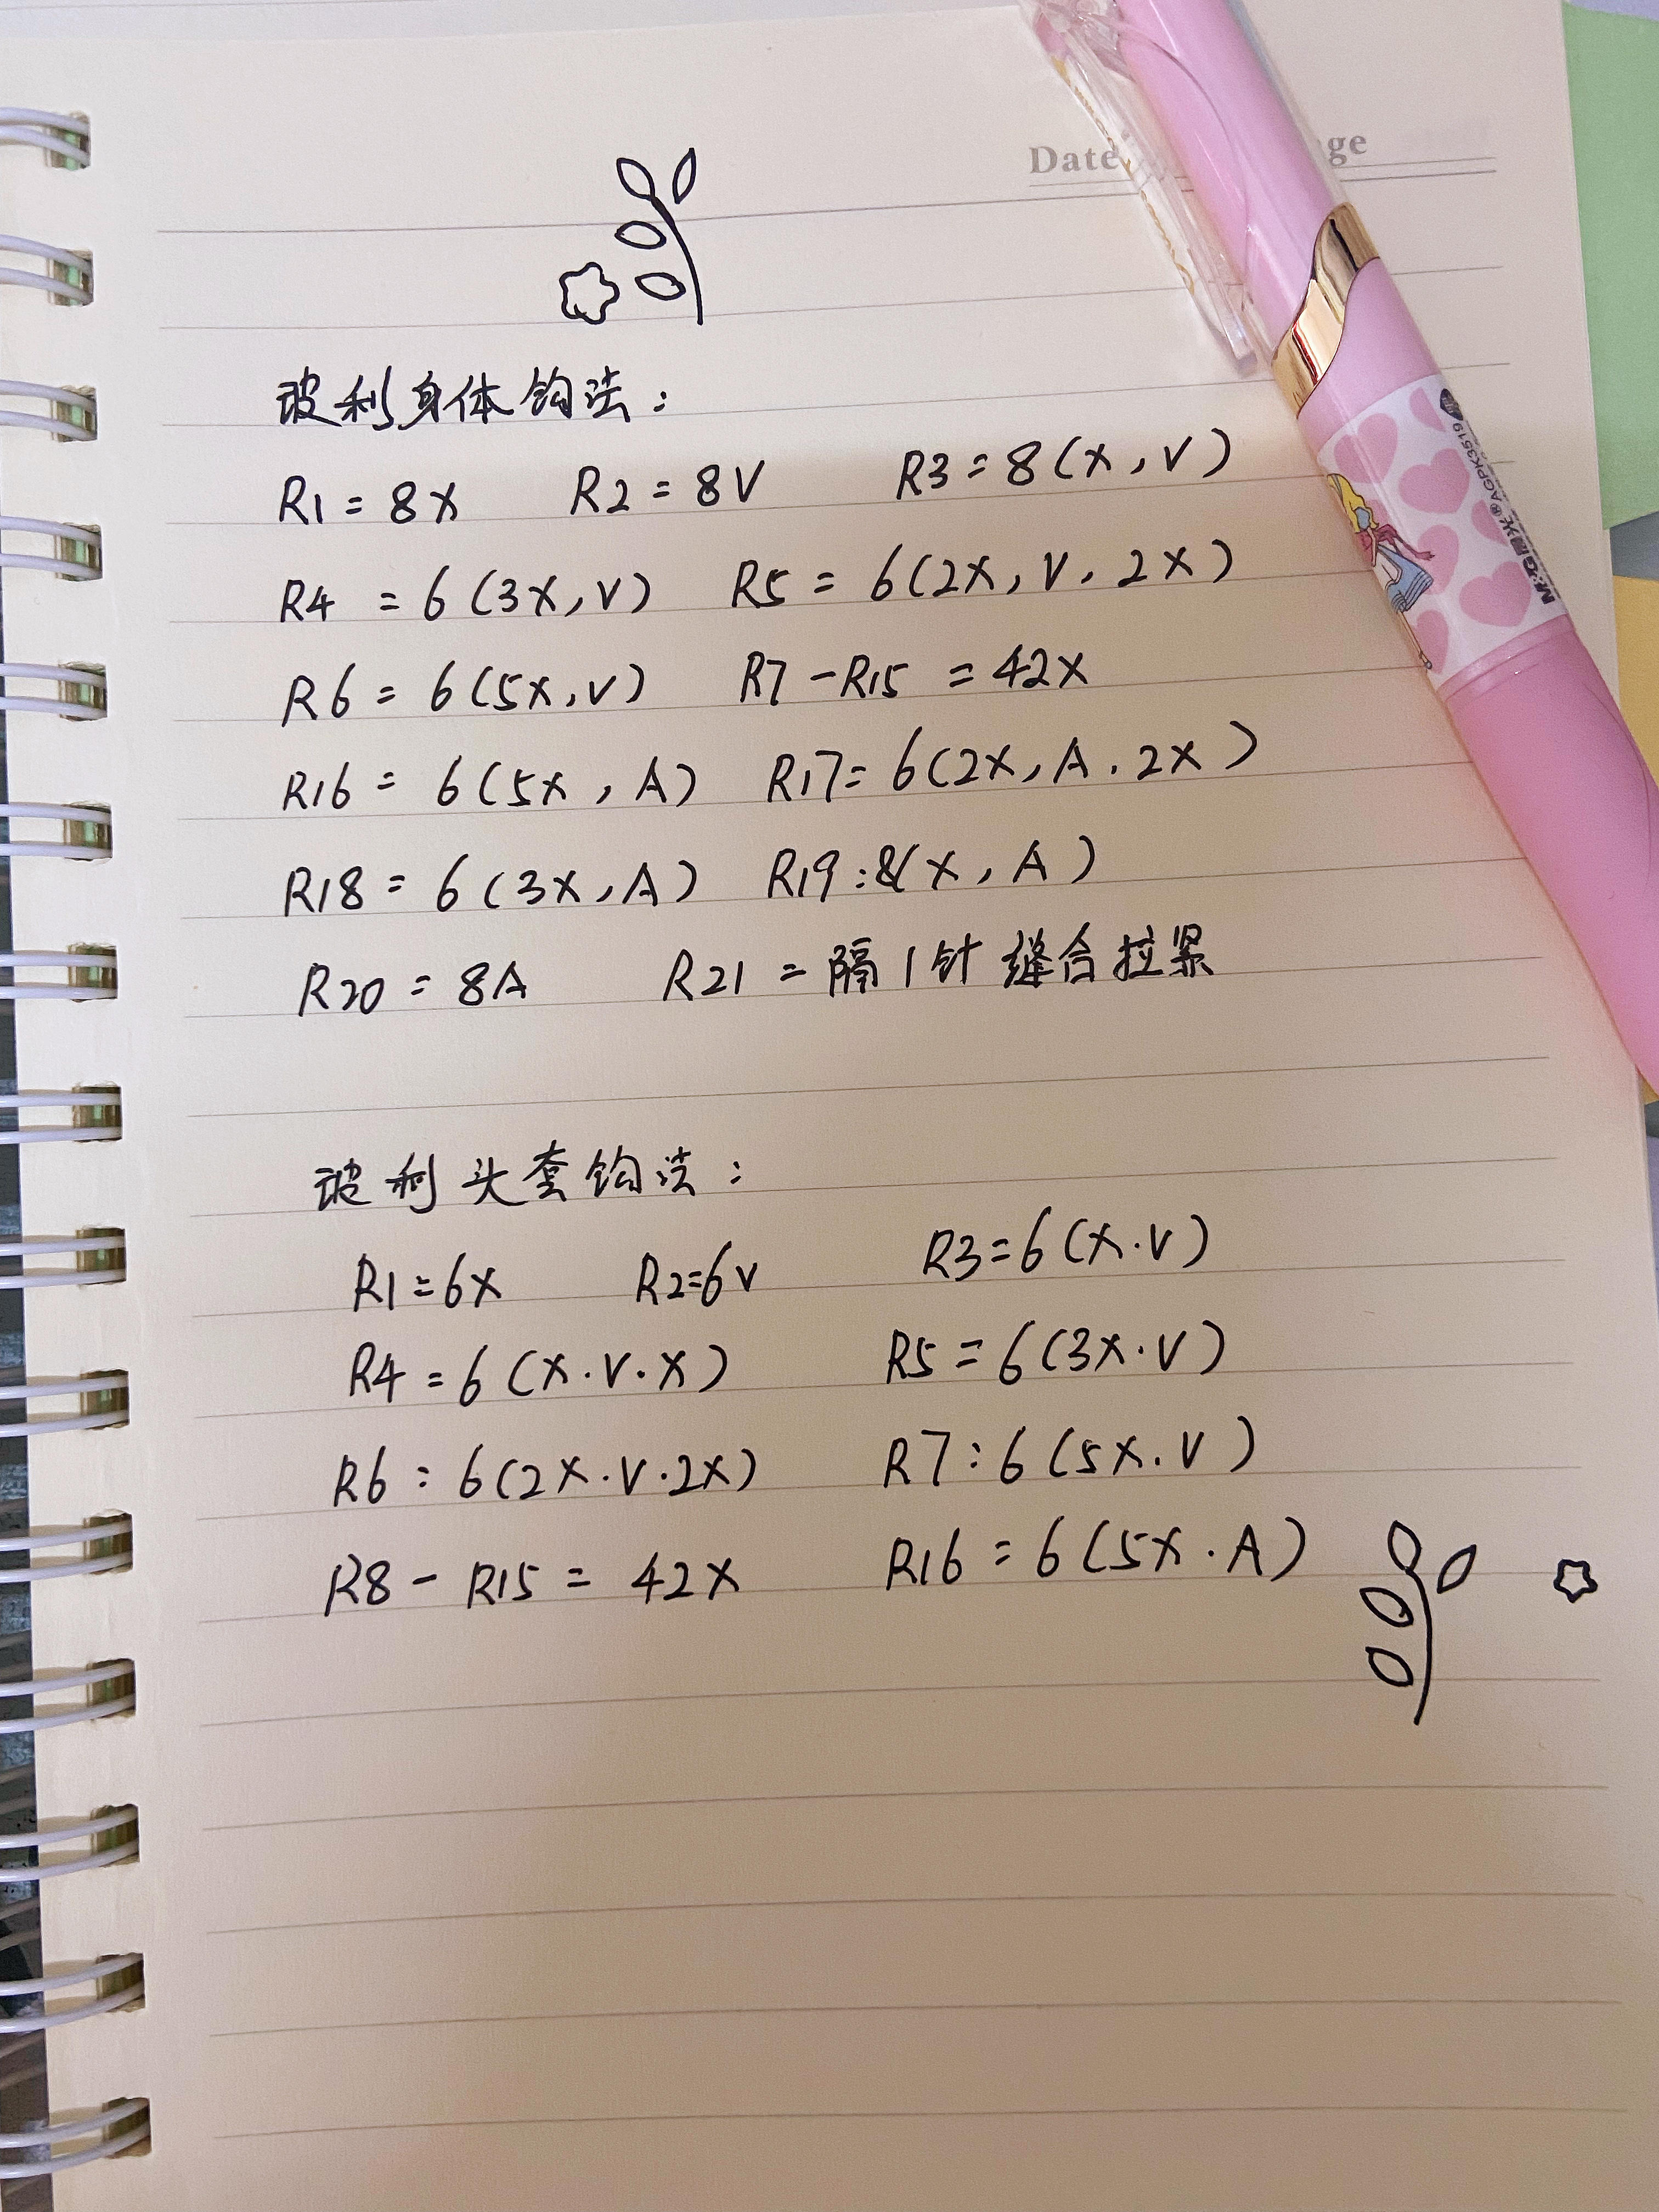 Date
ge
M&G晨光® AGPK3519
玻利身体钩法:
R1=8X R2=8V R3=8(X,V)
R4=6(3X,V) R5=6(2X,V.2X)
R6=6(5X,V) R7-R15=42X
R16=6(5X,A) R17=6(2X,A.2X)
R18=6(3X,A) R19:8(X,A)
R20=8A R21=隔1针缝合拉紧
玻利头套钩法:
R1=6X R2=6V R3=6(X.V)
R4=6(X.V.X) R5=6(3X.V)
R6:6(2X.V.2X) R7:6(5X.V)
R8-R15=42X R16=6(5X.A)